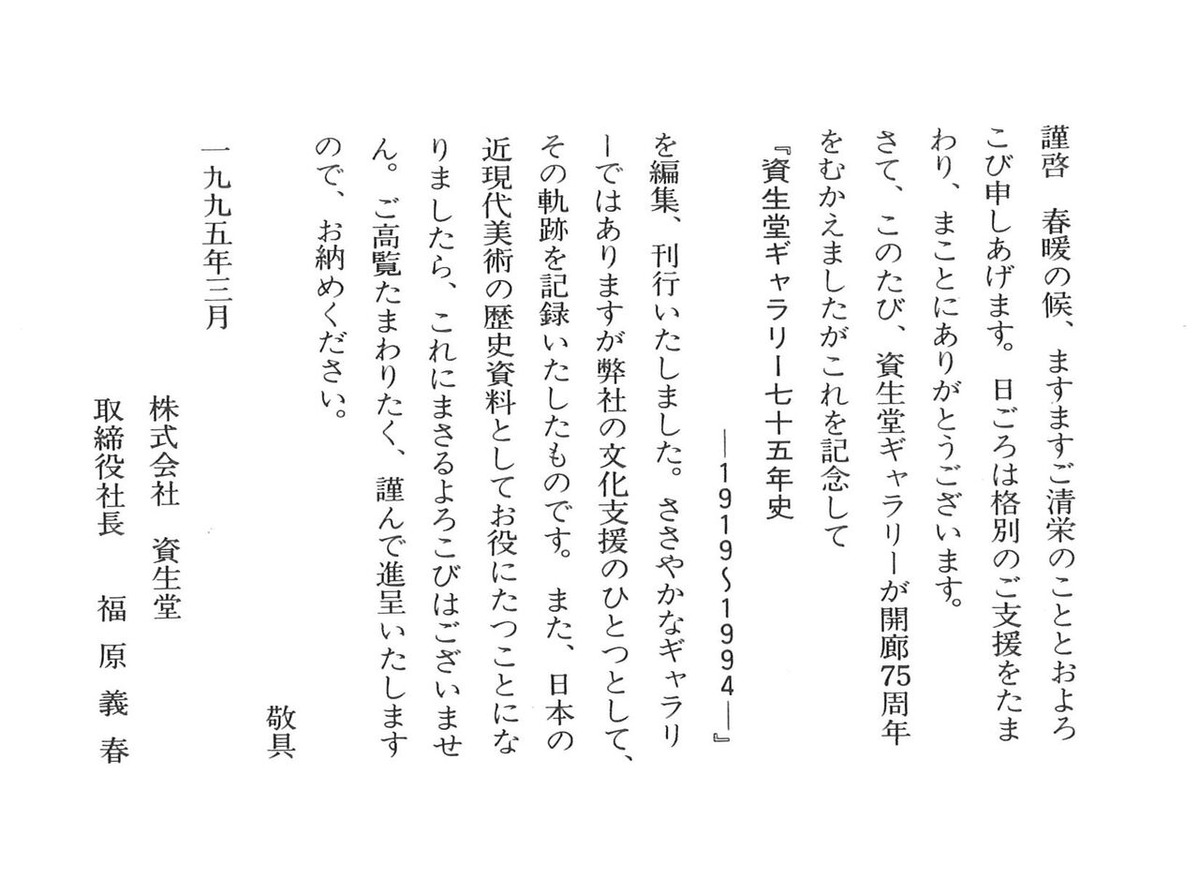 謹啓　春暖の候、ますますご清栄のこととおよろ
こび申しあげます。日ごろは格別のご支援をたま
わり、まことにありがとうございます。
さて、このたび、資生堂ギャラリーが開廊75周年
をむかえましたがこれを記念して
『資生堂ギャラリー七十五年史
―1919〜1994―』
を編集、刊行いたしました。ささやかなギャラリ
ーではありますが弊社の文化支援のひとつとして、
その軌跡を記録いたしたものです。また、日本の
近現代美術の歴史資料としてお役にたつことにな
りましたら、これにまさるよろこびはございませ
ん。ご高覧たまわりたく、謹んで進呈いたします
ので、お納めください。
敬具
一九九五年三月
株式会社　資生堂
取締役社長　福原義春